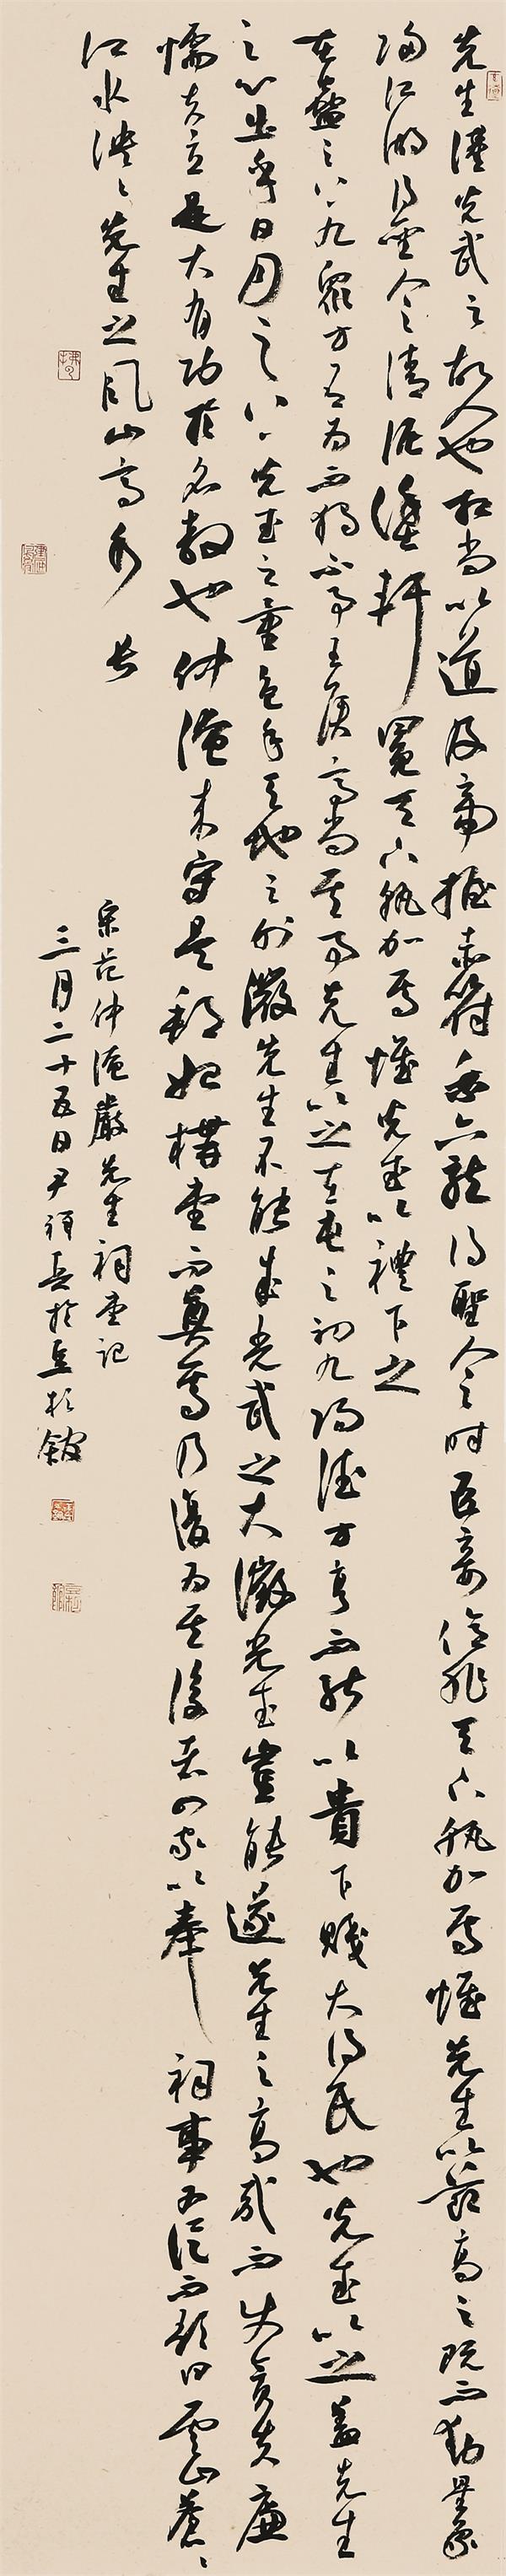 先生漢光武之故人也相尚以道及帝握赤符乘六龍得聖人之時臣妾億兆天下孰加焉惟先生以節高之既而動星象
歸江湖得聖人之清泥塗軒冕天下孰加焉惟光武以禮下之
在蠱之上九眾方有為而獨不事王侯高尚其事先生以之在屯之初九陽德方亨而能以貴下賤大得民也光武以之蓋先生
之心出乎日月之上光武之量包乎天地之外微先生不能成光武之大微光武豈能遂先生之高哉而使貪夫廉
懦夫立是大有功於名教也仲淹來守是邦始構堂而奠焉乃復為其後者四家以奉祠事又從而歌曰雲山蒼々
江水泱々先生之風山高水長
宋范仲淹嚴先生祠堂記
三月二十五日尹